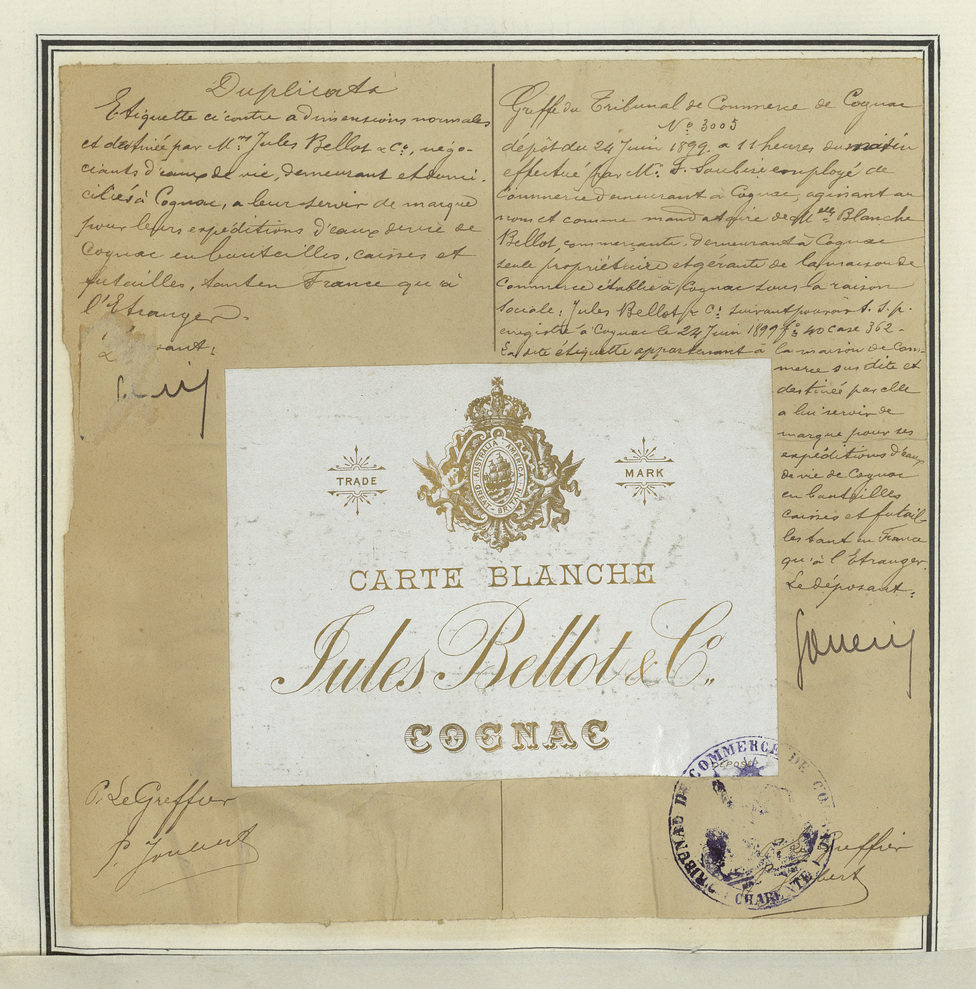 Duplicata
Etiquette ci contre à dimensions normales
et destinée par Mrs Jules Bellot & Co, négo-
ciants d'eaux de vie, demeurant et domi-
ciliés à Cognac, a leur servir de marque
pour leurs expéditions d'eaux de vie de
Cognac en bouteilles, caisses et
futailles, tant en France qu'à
l'Etranger.
Greffe du Tribunal de Commerce de Cognac
No 3005
dépôt du 24 Juin 1899 a 11 heures du matin
effectué par Mr employé de
Commerce demeurant à Cognac, agissant au
nom et comme mandataire de Melle Blanche
Bellot, commerçante, demeurant à Cognac
seule propriétaire et gérante de la maison de
Commerce établie à Cognac sous la raison
sociale: Jules Bellot & Co suivant pouvoir s.s.p.
enregistré à Cognac le 24 Juin 1899 fo 40 case 362-
La dite étiquette appartenant à la maison de Com-
merce sus dite et
destinée par elle
a lui servir de
marque pour ses
expéditions d'eaux
de vie de Cognac
en bouteilles
caisses et futail-
les tant en France
qu'à l'Etranger.
Le déposant:
TRADE
MARK
AUSTRALIA AMERICA
GREAT-BRITAIN
CARTE BLANCHE
Jules Bellot & Co.
COGNAC
DÉPOSÉ
P. Le Greffier
P. Joubert
TRIBUNAL DE COMMERCE DE CO
CHARENTE
Greffier